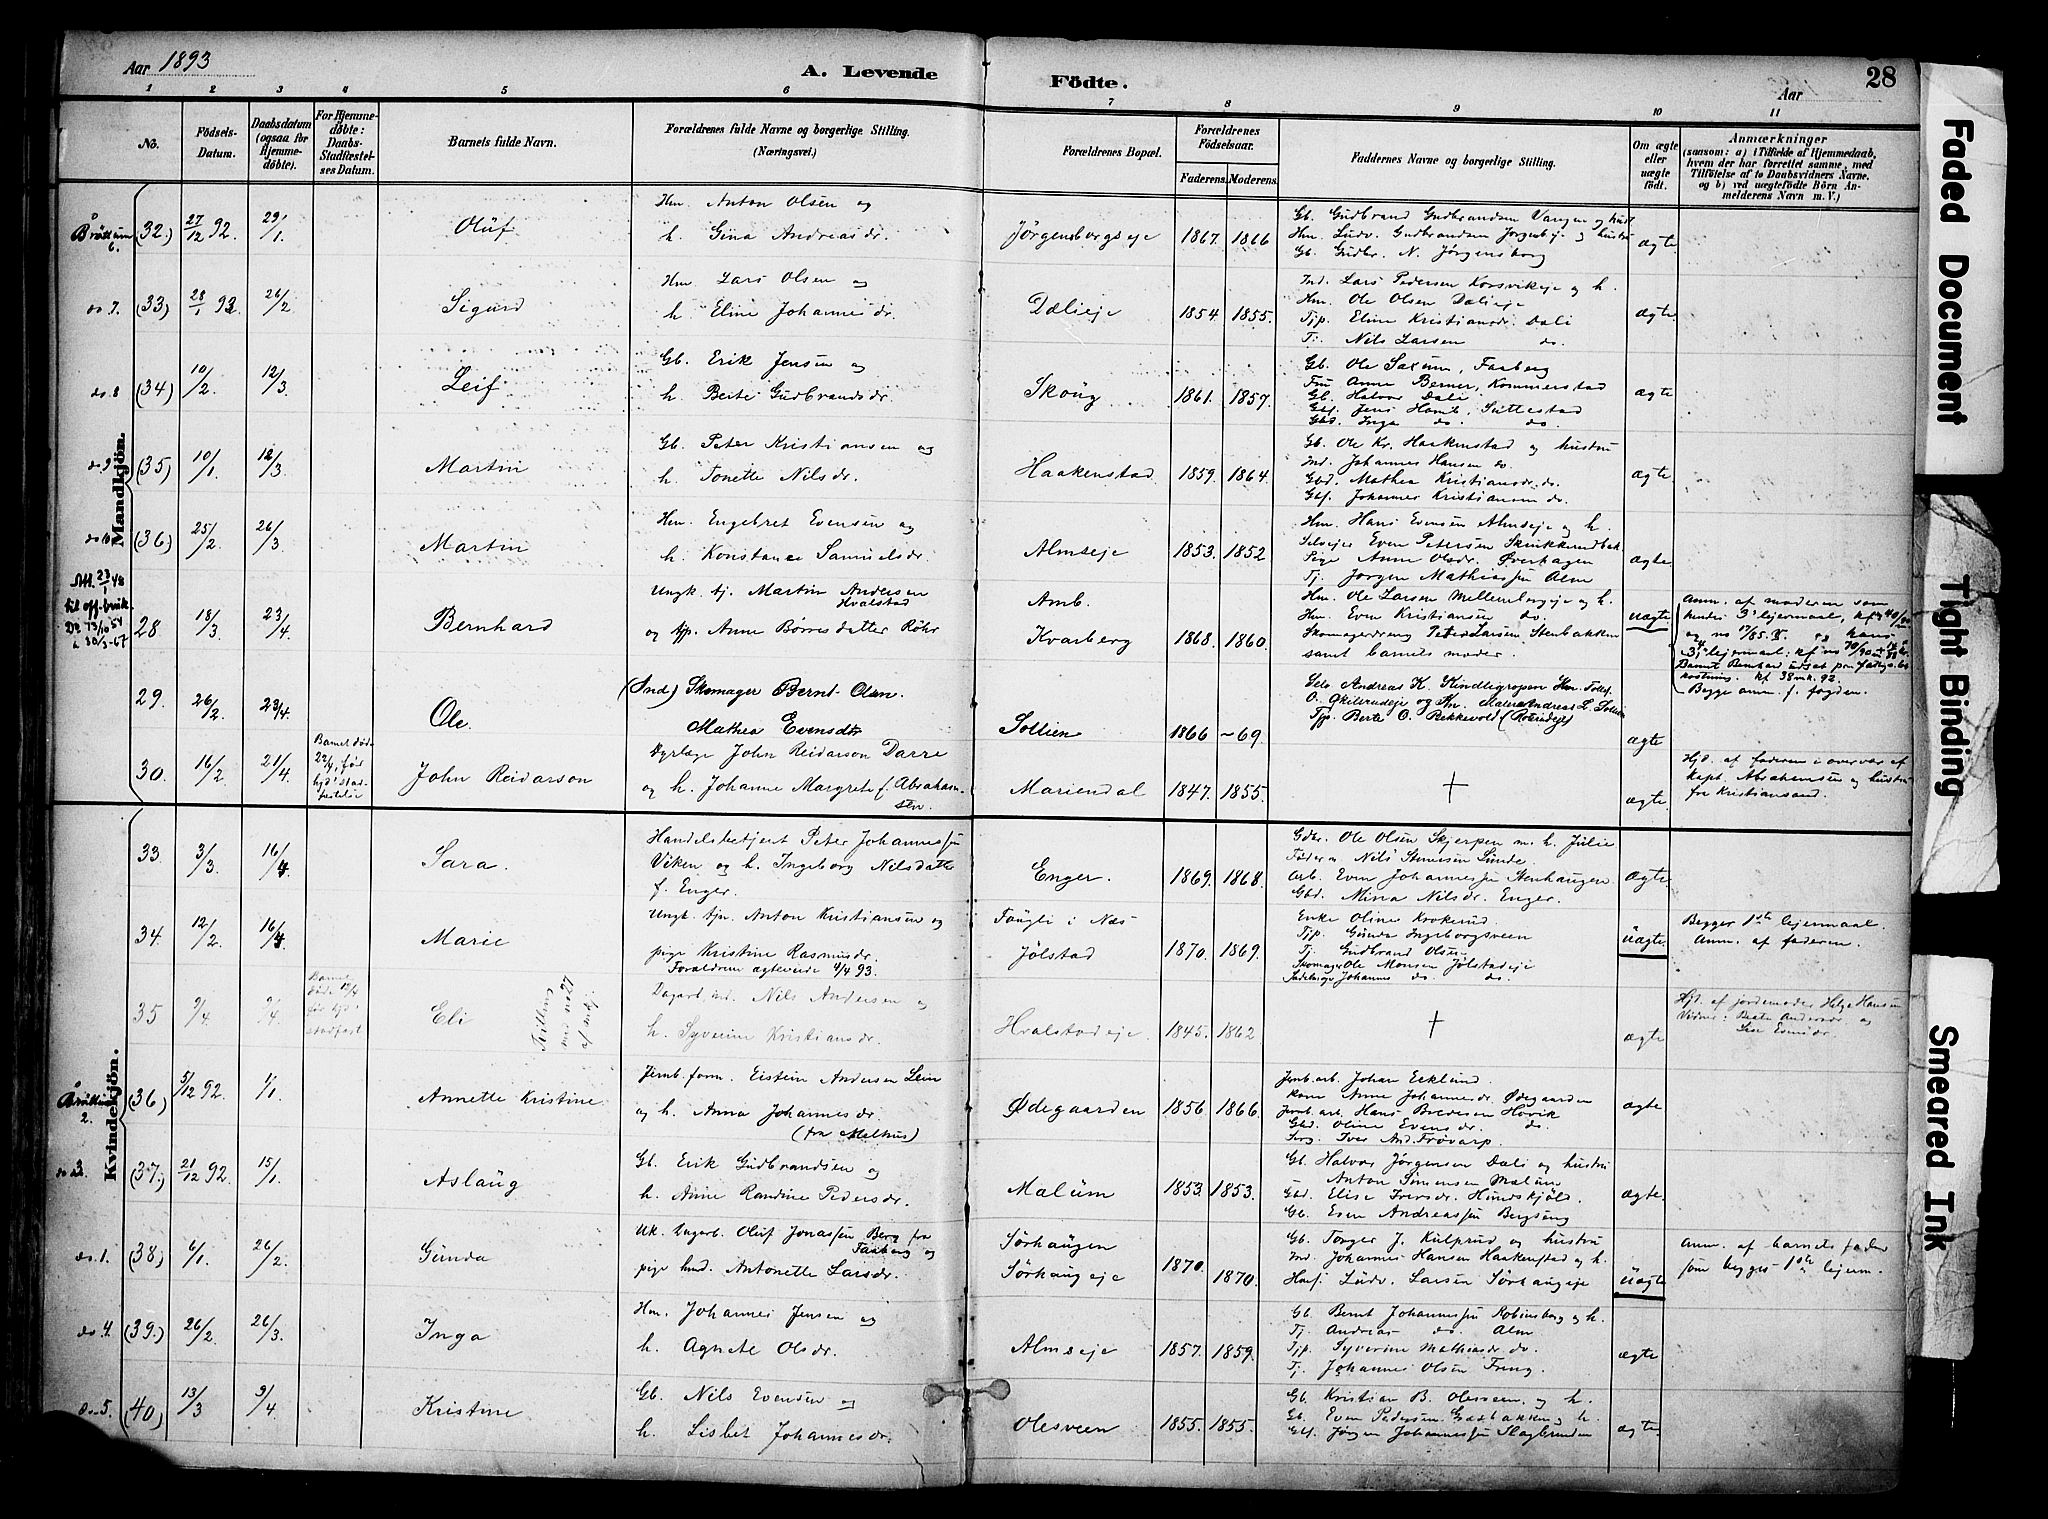 Aar 1893
A. Levende
Födte.
28
Aar
1 2 3 4 5 6 7 8 9 10 11
No.
Födsels-
Datum.
Daabsdatum
(ogsaa for
Hjemme-
døbte).
For Hjemme-
døbte:
Daabs-
Stadfæstel-
ses Datum.
Barnets fulde Navn.
Forældrenes fulde Navne og borgerlige Stilling.
(Næringsvei.)
Forældrenes Bopæl.
Forældrenes
Födselsaar.
Faderens. Moderens.
Faddernes Navne og borgerlige Stilling.
Om ægte
eller
uægte
født.
Anmærkninger
(saasom: a) i Tilfælde af Hjemmedaab,
hvem der har forrettet samme, med
Tilføielse af to Daabsvidners Navne.
og b) ved uægtefödte Börn An-
melderens Navn m. V.)
Mandkjön.
Brøttum 6. (32.) 27/12 92. 29/1 Oluf
Hm. Anton Olsen og
h. Gina Andreasdr.
Jørgensborgseje 1867. 1866
Gb. Gudbrand Gudbrandsen Vangen og hust.
Hm. Ludv. Gudbrandsen Jørgensbeje og hustru
Gb. Gudbr. N. Jørgensborg
ægte
do 7. (33) 28/1 93. 26/2 Sigurd
Hm Lars Olsen og
h. Eline Johannesdr.
Dælieje 1854. 1855.
Ind. Lars Pedersen Korsvikeje og h.
Hm. Ole Olsen Dælieje
Tjp. Eline Kristiansdr. Dæli
Tj. Nils Larsen do.
ægte
do. 8 (34) 10/2 12/3 Leif
Gb. Erik Jensen og
h. Berte Gudbrandsdr.
Skoug 1861. 1857.
Gb. Ole Saxum, Faaberg
Fru Anne Berner, Kommerstad
Gb. Halvor Dæli
Gbf. Jens Hamb. Sutterstad
Gbd. Inga do. do.
ægte
do 9 (35) 10/1 12/3 Martin
Gb. Peter Kristiansen og
h. Tonette Nilsdr.
Haakenstad 1859. 1864.
Gb. Ole Kr. Haakenstad og hustru
Ind. Johannes Hansen do.
Gbd. Mathea Kristiansdr. do.
Gbf. Johannes Kristiansen do.
ægte
do 10 (36) 25/2 26/3 Martin
Hm. Engebret Evensen og
h. Konstance Samuelsdr.
Almseje 1853. 1852
Hm. Hans Evensen Almseje og h.
Selvejer Even Petersen Skrukkerudbak.
Pige Anne Olsdr. Øverhagen
Tj. Jørgen Mathiassen Alm
ægte
Att. 23/1 48
til off. bruk.
28 18/3 23/4 Bernhard
Ungk. tj. Martin Andersen
Hvalstad
og tjp. Anne Børresdatter Röhr
Amb.
Kvarberg 1868. 1860.
Hm. Ole Larsen Mellembergeje og h.
Hm. Even Kristiansen do.
Skomagerdreng Peder Larsen Stenbakken
samt barnets moder.
uægte
Anm. af moderen som
hendes 3' lejermaal,
Begge anm. f. fogden.
29. 26/2 23/4. Ole.
(Ind) Skomager Bernt Olsen.
Mathea Evensdr
Sollien 1866 ~69.
ægte
30. 16/2 21/4
Barnet død
22/4, før
hjd's stad-
festelse
John Reidarson
Dyrlæge John Reidarson Darre
og h. Johanne Margrete f. Abraham-
sen.
Mariendal 1847. 1855.
+
ægte
Hjd. af faderen i overvær af
Kapt. Abrahamsen og hustru
fra Kristiansand.
Kvindekjön.
33. 3/3 16/4 Sara.
Handelsbetjent Peter Johannessen
Viken og h. Ingeborg Nilsdatter
f. Enger.
Enger. 1869. 1868.
Gdbr. Ole Olsen Skjerpen m. h. Julie
Føderm. Nils Simensen Lunde.
Arb. Even Johannessen Stenhaugen.
Gbd. Mina Nilsdr. Enger.
ægte
34. 12/2 16/4 Marie
Ungk. tjn. Anton Kristiansen og
pige Kristine Rasmusdr.
Forældrene ægteviede 4/4 93.
Taugli i Næs
Jølstad 1870. 1869.
Enke Oline Krokerud.
Tjp. Gunda Ingeborgsveen
Tj. Gudbrand Olsen
Skomager Ole Monsen Jølstadeje
Johannes do. do.
uægte
Begges 1ste lejermaal.
Anm. af faderen.
35 9/4. 9/4.
Barnet
døde 12/4
før hjd's
stadfæst.
Eli
Tvilling
med no 27
af mkj.
Dagarb. ind. Nils Andersen og
h. Syverine Kristiansdr.
Hvalstadeje 1845. 1862.
+
ægte
Hjd. af jordemoder Helga Hansen
Vidner: Beate Andersdr. og
Lise Evensdr.
Brøttum 2. (36) 5/12 92. 1/1 Annette Kristine
Jernb. form. Eistein Andersen Lein
og h. Anna Johannesdr.
(fra Melhus)
Ødegaarden 1856. 1866.
Jernb. arb. Johan Ecklund.
Kone Anne Johannesdr. Ødegaarden
Jernb. arb. Hans Bredesen Hovik
Gbd. Oline Evensdr. do.
Serg. Iver And. Frövarp.
ægte
do 3. (37.) 21/12 92. 15/1. Aslaug
Gb. Erik Gudbrandsen og
h. Anne Randine Pedersdr.
Mælum 1853. 1853.
Gb. Halvor Jørgensen Dæli og hustru
Anton Simensen Mælum
Gbd. Elise Iversdr. Hundskjöld.
Gb. Even Andreassen Bergseng
ægte
do. 1. (38) 6/1. 26/2. Gunda
Uk. Dagarb. Oluf Jonassen Berg fra
Faaberg og
pige ind. Antonette Larsdr.
Sørhaugen
Sørhaugeje 1870. 1870.
Gb. Torger J. Kulprud og hustru
Ind. Johannes Hansen Haakenstad og h.
Husf. Ludv. Larsen Sørhaugeje
uægte
Anm. af barnets fader
som begges 1ste lejerm.
do 4. (39.) 26/2. 26/3. Inga
Hm. Johannes Jensen og
h. Agnete Olsdr.
Almseje 1857. 1859.
Gb. Bernt Johannessen Robinsborg og h.
Tj. Andreas do. Alm
Tjp. Syverine Mathiasdr. do.
Tj. Johannes Olsen Freng.
ægte
do. 5. (40) 13/3 9/4 Kristine
Gb. Nils Evensen og
h. Lisbet Johannesdr.
Olesveen 1855. 1855.
Gb. Kristian B. Olesveen og h.
Gb. Even Pedersen Gaasbakken og h.
Gbf. Jørgen Johannessen Slagbrenden
ægte
Faded Document
Tight Binding
Smeared Ink